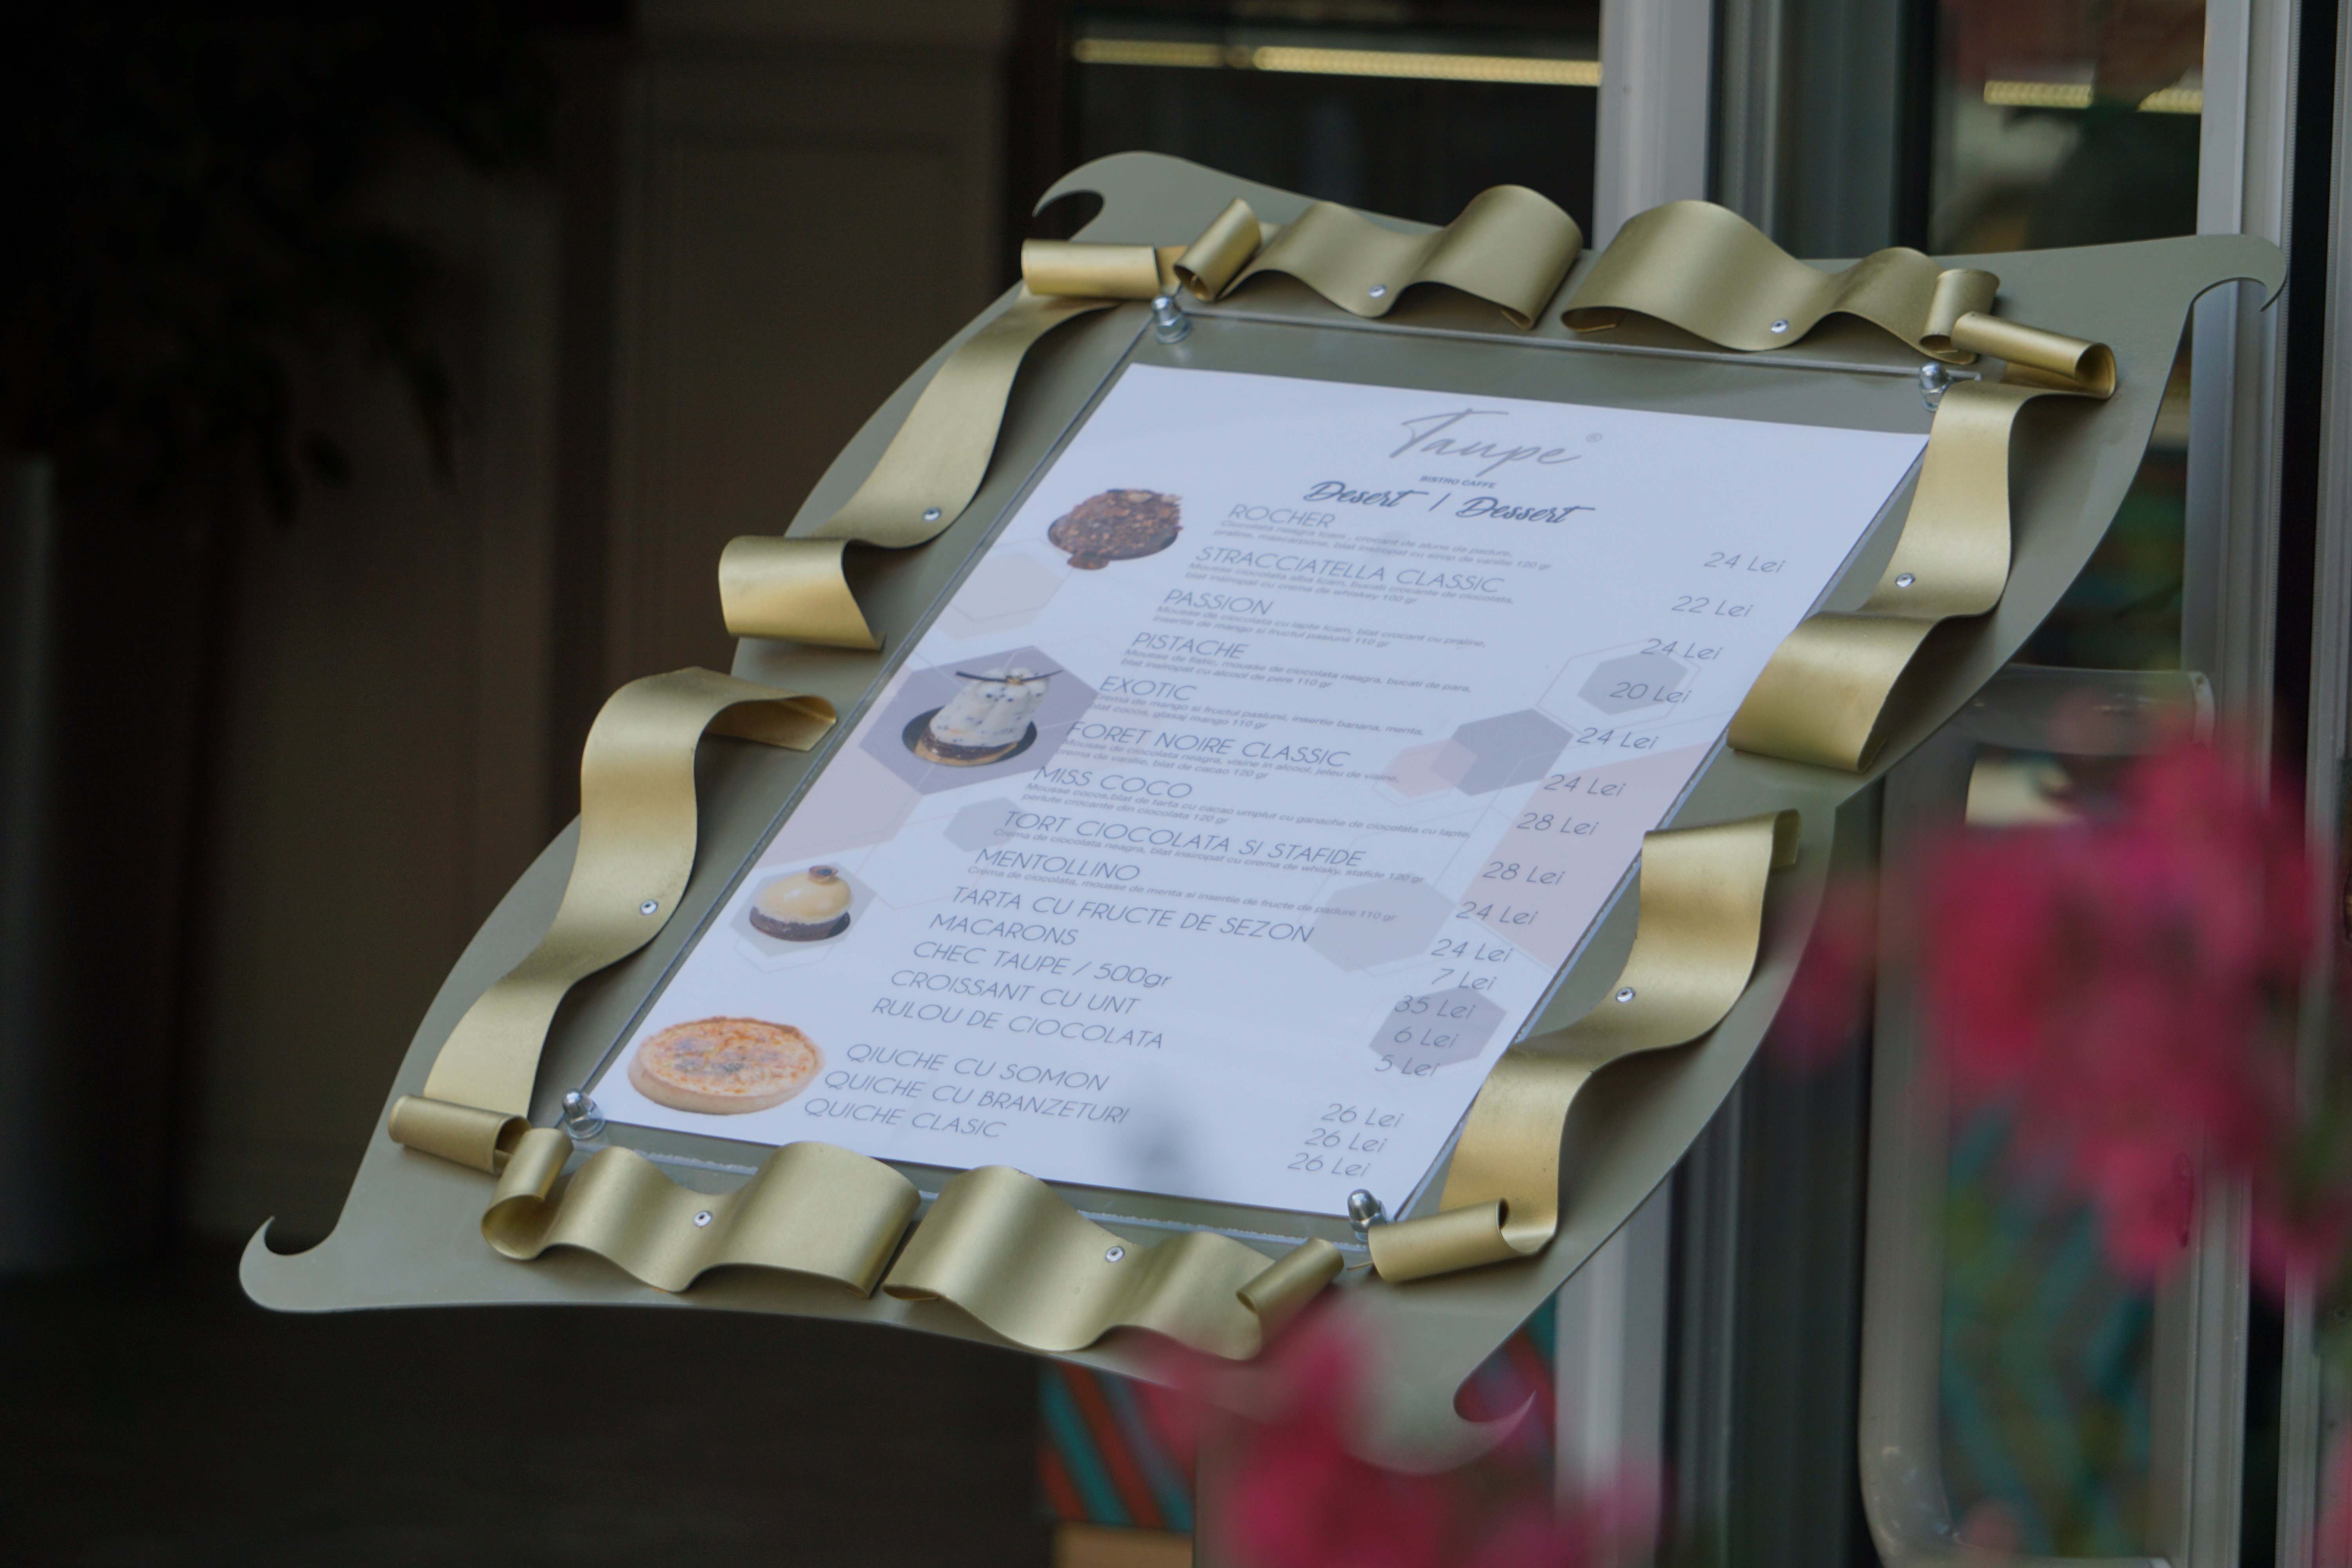 Taupe®
BISTRO CAFFE
Desert / Dessert
ROCHER 24 Lei
Ciocolata neagra Icam, crocant de alune de padure,
praline, mascarpone, blat insiropat cu sirop de vanilie 120 gr
STRACCIATELLA CLASSIC 22 Lei
Mousse ciocolata alba Icam, bucati crocante de ciocolata,
blat insiropat cu crema de whiskey 100 gr
PASSION 24 Lei
Mousse de ciocolata cu lapte Icam, blat crocant cu praline,
insertie de mango si fructul pasiunii 110 gr
PISTACHE 20 Lei
Mousse de fistic, mousse de ciocolata neagra, bucati de para,
blat insiropat cu alcool de pere 110 gr
EXOTIC 24 Lei
Crema de mango si fructul pasiunii, insertie banana, menta,
blat cocos, glasaj mango 110 gr
FORET NOIRE CLASSIC 24 Lei
Mousse de ciocolata neagra, visine in alcool, jeleu de visine,
crema de vanilie, blat de cacao 120 gr
MISS COCO 28 Lei
Mousse cocos,blat de tarta cu cacao umplut cu ganache de ciocolata cu lapte,
perlute crocante din ciocolata 120 gr
TORT CIOCOLATA SI STAFIDE 28 Lei
Crema de ciocolata neagra, blat insiropat cu crema de whisky, stafide 120 gr
MENTOLLINO 24 Lei
Crema de ciocolata, mousse de menta si insertie de fructe de padure 110 gr
TARTA CU FRUCTE DE SEZON 24 Lei
MACARONS 7 Lei
CHEC TAUPE / 500gr 35 Lei
CROISSANT CU UNT 6 Lei
RULOU DE CIOCOLATA 5 Lei
QIUCHE CU SOMON 26 Lei
QUICHE CU BRANZETURI 26 Lei
QUICHE CLASIC 26 Lei